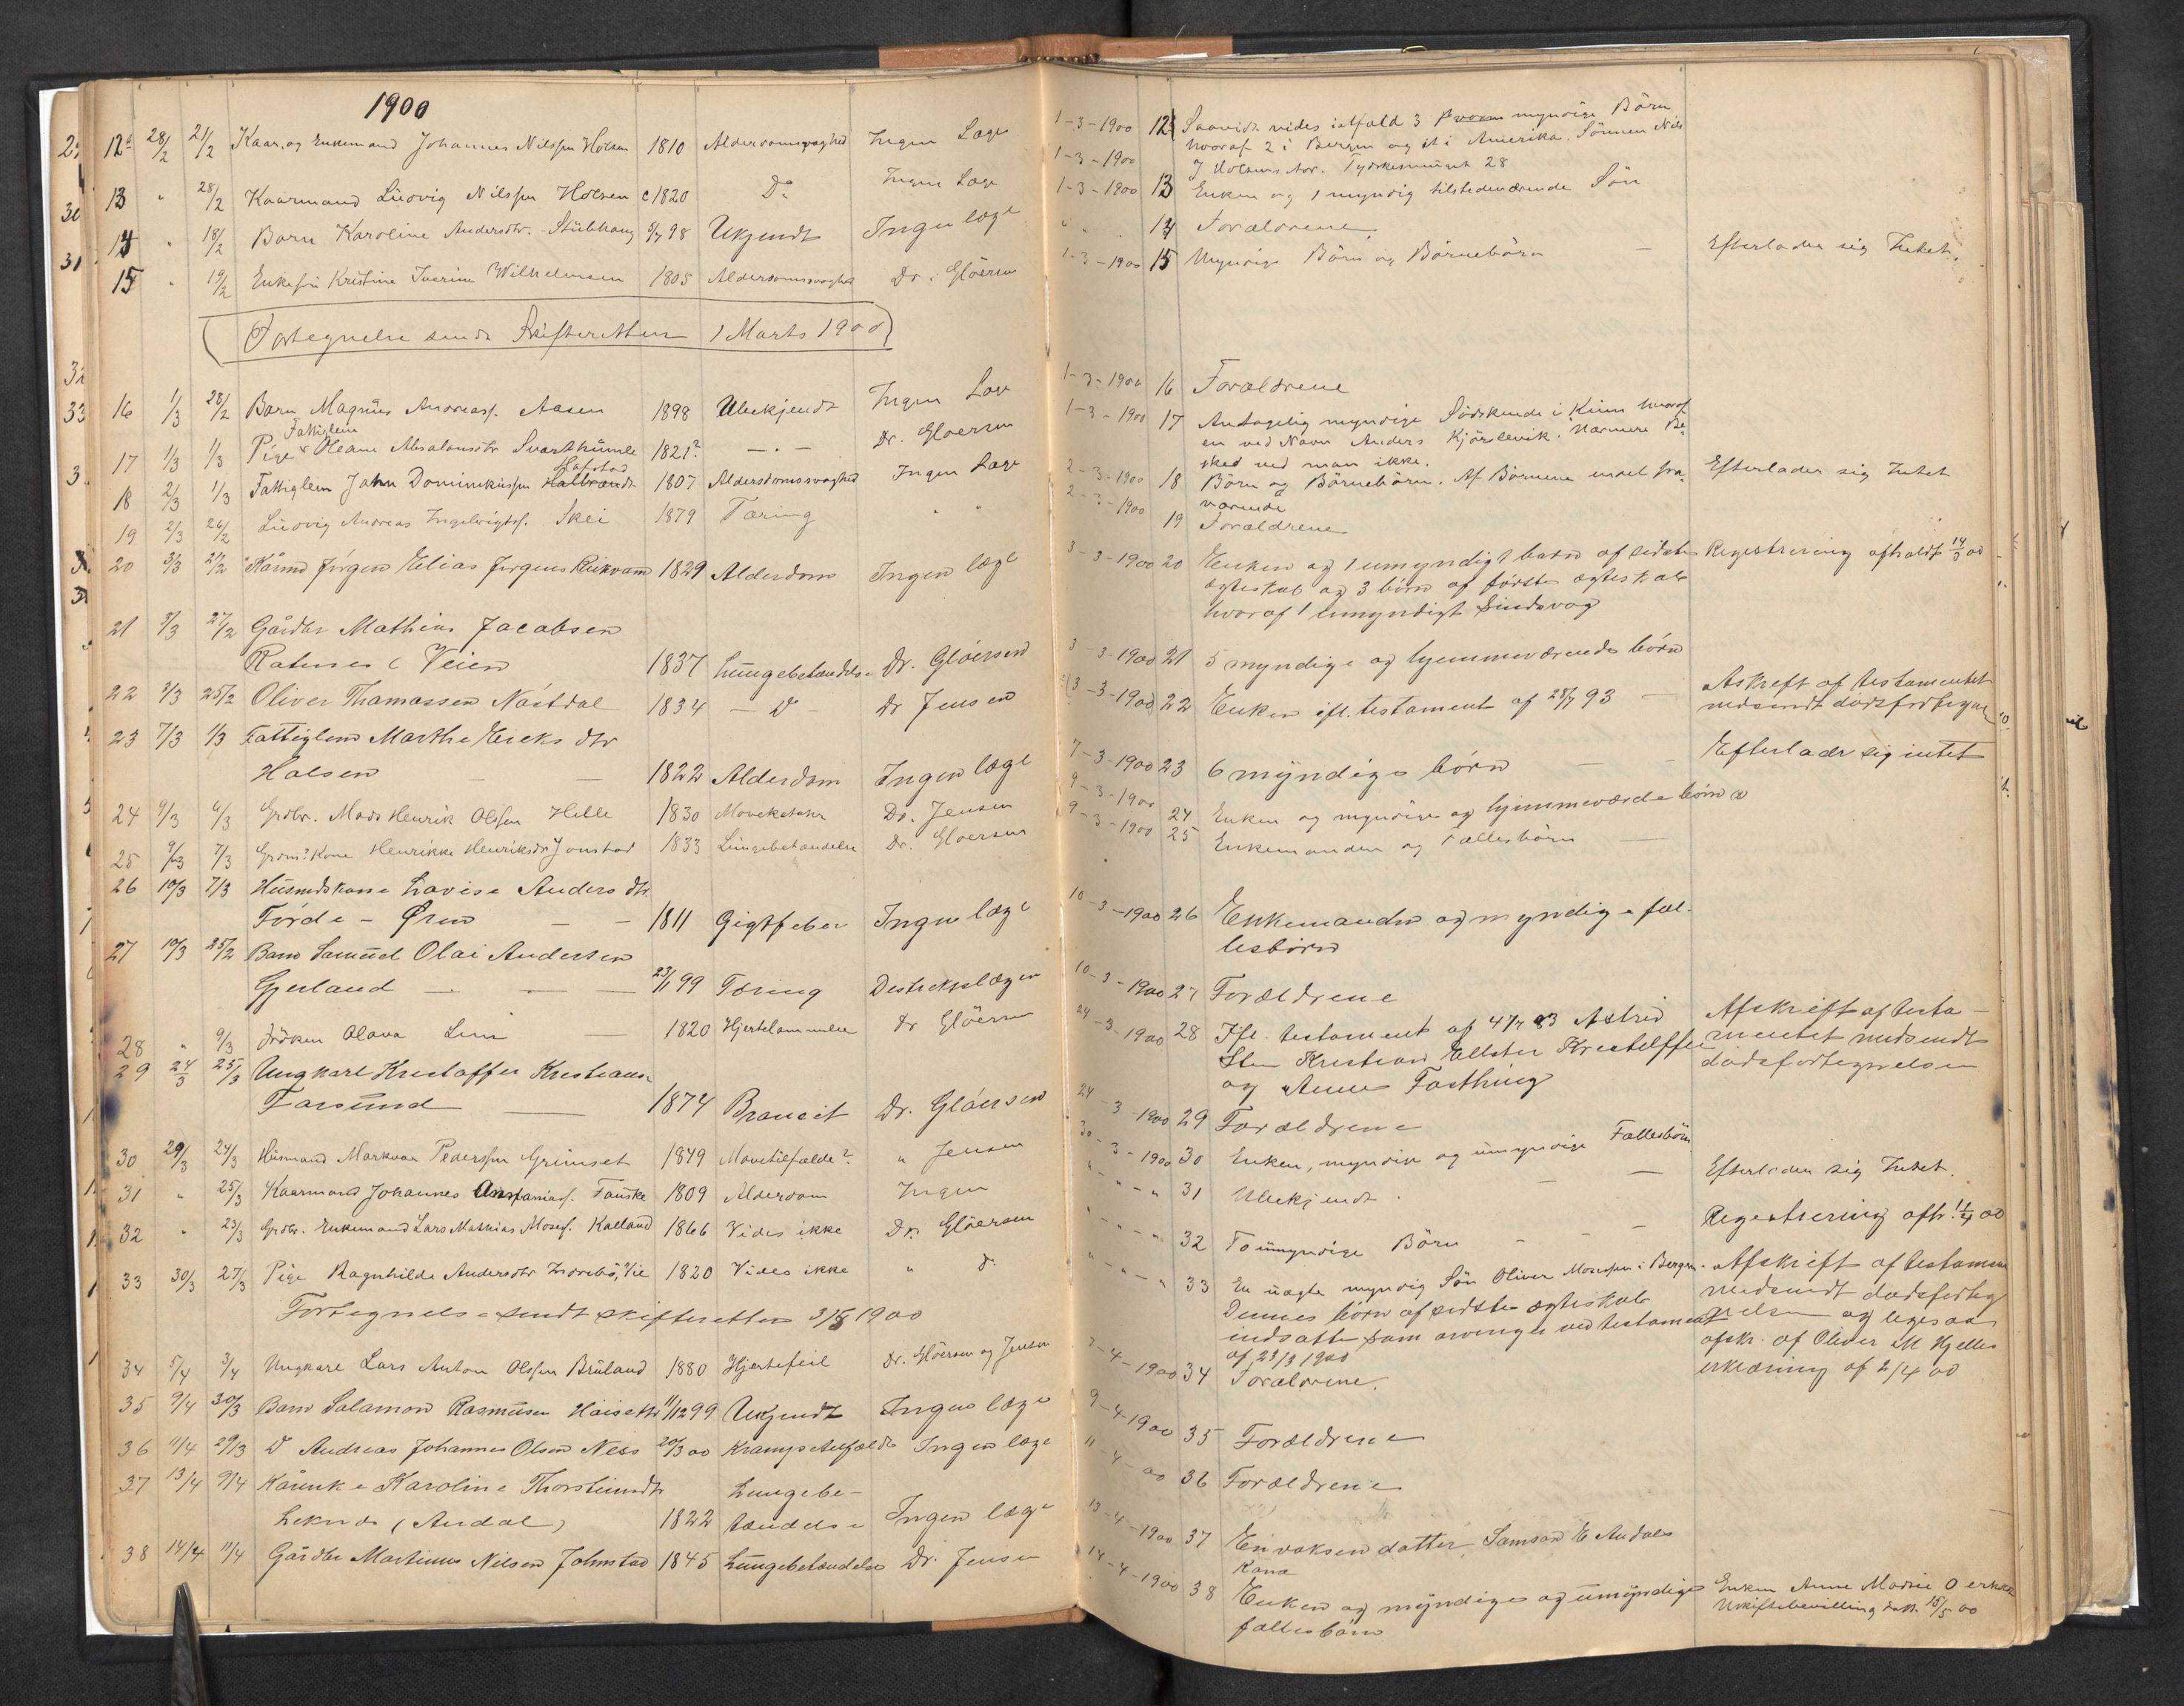 1900
12 28/2 21/2 Kaar. og Enkemand Johannes Nilssen Holsen 1810 Alderdomssvaghed Ingen Læge
13 " 28/2 Kaarmand Ludvig Nilssen Holsen c 1820 Do Ingen Læge
14 " 18/2 Barn Karoline Andersdtr. Stubhaug 98 Ukjendt Ingen læge
15 " 19/2 Enkefru Kristine Iverine Wilhelmsen 1805 Alderdomssvaghed Dr. Gløersen
Fortegnelse sendt Skifteretten 1 Marts 1900
16 1/3 28/2 Barn Magnus Andreass. Aasen 1898 Ubekjendt Ingen Læge
Fattiglem
17 1/3 1/3 Pige Oleane Absalonsdtr Svarthumle 1821? — " — Dr. Gloersen
Hafstad
18 2/3 1/3 Fattiglem John Dominikussen Halbrendt 1807 Alderdomssvaghed Ingen Læge
19 2/3 26/2 Ludvig Andreas Ingebrigts. Skei 1879 Tæring " "
20 3/3 Kårmd Jørgen Elias Jørgens Reikvam 1829 Alderdom Ingen læge
21 3/3 27/2 Gårdbr Mathias Jacobsen
(Veien 1837 Lungebetændelse Dr. Gløersen
22 3/3 25/2 Oliver Thomassen Nástdal 1834 — D — Dr Jensen
23 7/3 1/3 Fattiglem Marthe Eriks dtr
Holsen — — 1822 Alderdom Ingen læge
24 9/3 6/3 Grdbr. Mads Henrik Olssen Helle 1830 Mavekatarr Dr. Jensen
25 9/3 7/3 Grdm? Kone Henrikke Henriksdtr Jonstad 1833 Lungebetændelse Dr. Gloersen
26 10/3 7/3 Husmdskone Lovise Anders dtr.
Førde - Øren — — 1811 Gigtfeber Ingen læge
27 10/3 25/2 Barn Samuel Olai Andersen
Gjerland — — — 23/1 99 Tæring Destriktslægen
28 " 9/3 Frøken Olava Lem — 1820 Hjertelammelse Dr Gløersen
29 24/3 Ungkarl Kristoffer Kristians.
Farsund — 1874 Dr. Gløersen
30 29/3 24/3 Husmand Markvar Pederssen Grimset 1849 Mavetilfælde? " Jensen
31 " 25/3 Kaarmand Johannes Fauske 1809 Alderdom Ingen
32 " 23/3 Grdbr. Enkemand Lars Mathias Moses. Kalland 1866 Vides ikke Dr. Gløersen
33 30/3 27/3 Pige Ragnhilde Andersdtr 1820 Vides ikke " d.
Fortegnelse sendt skifteretten 1900
34 5/4 3/4 Ungkarl Lars Anton Olssen Bruland 1880 Hjertefeil Dr. Gløersen og Jensen
35 9/4 30/3 Barn Salamon Rasmusen 11/12 99 Ukjendt Ingen læge
36 11/4 29/3 D Andreas Johannes Olsen Ness 20/3 00 Krampetilfælde Ingen læge
37 13/4 9/4 Kårenke Karoline Thorsteinsdtr Lungebe-
(Andal) 1822 tændelse Ingen læge
38 14/4 11/4 Gårdbr Martinus Nilsen Johnstad 1845 Lungebetændelse Dr. Jensen
1-3-1900 12 Saavidt vides ialfald 3 myndige Börn
1-3-1900 hvoraf 2 i Bergen og et i Amerika. Sönnen Nils
J Holsens Tydskesmuget 28
1-3-1900 13 Enken og 1 myndig tilstedeværende Sön
" " " 14 Forældrene
1-3-1900 15 Myndige Börn og Börnebörn — Efterlader sig Intet.
1-3-1900 16 Forældrene
1-3-1900 17 Antagelig myndige Södskende i Kinn hvoraf
en ved Navn Anders Kjörslevik. Nærmere Be-
sked ved man ikke.
2-3-1900 18 Börn og Börnebörn. Af Börnene endel fra- Efterlader sig Intet
2-3-1900 værende
19 Forældrene
3-3-1900 20 Enken og 1 umyndigt barn af sidste Registrering afholdt 14/3 00
ægteskab og 3 börn af første ægteskab
hvoraf 1 umyndigt Sindsvag
3-3-1900 21 5 myndige og hjemmeværende börn
3-3-1900 22 Enken ifl. testament af 28/7 93 — Afskrift af testamentet
nedsendt
7-3-1900 23 6 myndige börn — Efterlader sig intet
9-3-1900 24 Enken og myndige og hjemmeværende börn
9-3-1900 25 Enkemanden og Fællesbörn —
10-3-1900 26 Enkemanden og myndige fæl-
lesbörn
10-3-1900 27 Forældrene
24-3-1900 28 Ifl. testament af Astrid Afskrift af testa-
Kristian Ellster mentet nedsendt
og Anne Fasthing dødsfortegnelsen
24-3-1900 29 Forældrene
30-3-1900 30 Enken, myndige og umyndige Fællesbörn
" - " - " 31 Ubekjendt. — Efterlader sig Intet.
" - " - " 32 To umyndige Börn — Registrering afh. 00
" - " - " 33 En uægte myndig Sön Oliver Mosessen i Bergen. Afskrift af testament
Dennes börn af sidste ægteskab nedsendt
indsatte som arvinger ved testament og ligesaa
af 23/3 1900 afskr. af Oliver M Hjelles
erklæring af 2/4 00
34 Forældrene.
9-4-1900 35 Forældrene
11-4-00 36 Forældrene
13-4-1900 37 En voksen datter, Samson E Andals
Kone
14-4-1900 38 Enken og myndige og umyndige Enken Anne Madsie O erholdt
fællesbörn Uskiftebevilling dat. 15/5 00